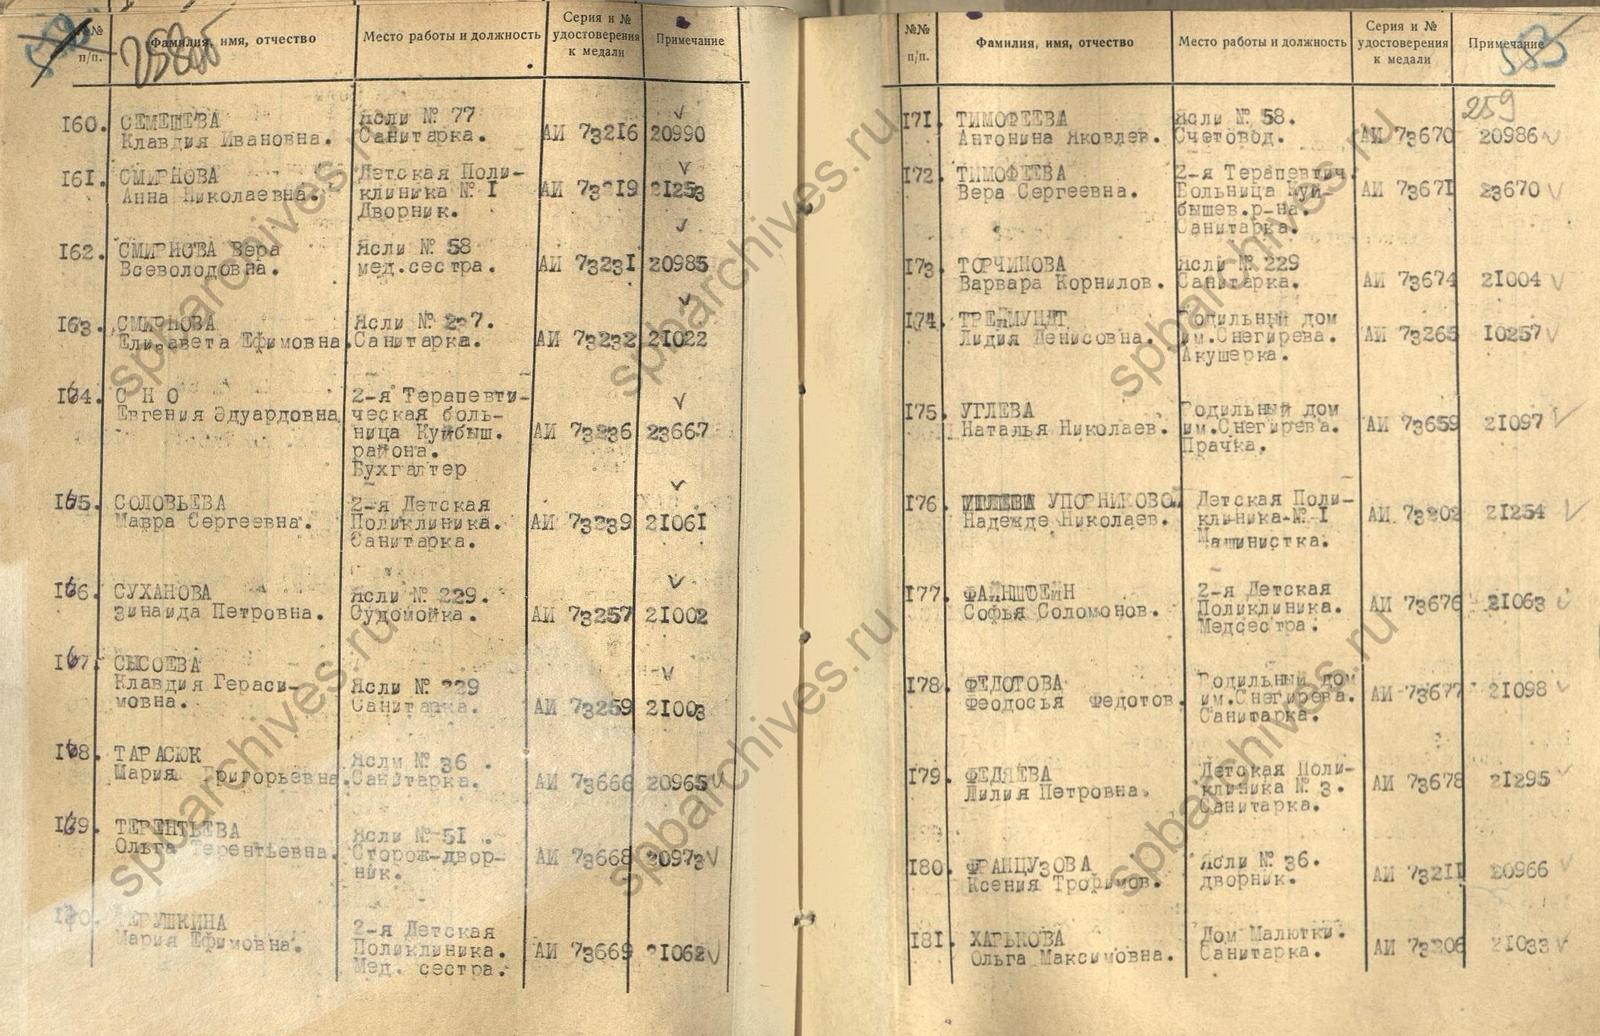 №№
п/п.
Фамилия, имя, отчество
Место работы и должность
Серия и №
удостоверения
к медали
Примечание
258об
160. СЕМЕШЕВА
Клавдия Ивановна.
Ясли № 77
Санитарка.
АИ 73216
20990
161. СМИРНОВА
Анна Николаевна.
Детская Поли-
клиника № I
Дворник.
АИ 73219
21253
162. СМИРНОВА Вера
Всеволодовна.
Ясли № 58
мед.сестра.
АИ 73231
20985
163. СМИРНОВА
Елизавета Ефимовна.
Ясли № 227.
Санитарка.
АИ 73232
21022
164. С Н О
Евгения Эдуардовна
2-я Терапевти-
ческая боль-
ница Куйбыш.
района.
Бухгалтер
АИ 73236
23667
165. СОЛОВЬЕВА
Мавра Сергеевна.
2-я Детская
Поликлиника.
Санитарка.
АИ 73239
21061
166. СУХАНОВА
Зинаида Петровна.
Ясли № 229.
Судомойка.
АИ 73257
21002
167. СЫСОЕВА
Клавдия Гераси-
мовна.
Ясли № 229
Санитарка.
АИ 73259
21003
168. ТАРАСЮК
Мария Григорьевна.
Ясли № 36 .
Санитарка.
АИ 73666
20965
169. ТЕРЕНТЬЕВА
Ольга Терентьевна.
Ясли № 51 .
Сторож-двор-
ник.
АИ 73668
20973
170. ТЕРУШКИНА
Мария Ефимовна.
2-я Детская
Поликлиника.
Мед. сестра.
АИ 73669
21062
№№
п/п.
Фамилия, имя, отчество
Место работы и должность
Серия и №
удостоверения
к медали
Примечание
259
171. ТИМОФЕЕВА
Антонина Яковлев.
Ясли № 58.
Счетовод.
АИ 73670
20986
172. ТИМОФЕЕВА
Вера Сергеевна.
2-я Терапевтич.
Больница Куй-
бышев.р-на.
Санитарка.
АИ 73671
23670
173. ТОРЧИНОВА
Варвара Корнилов.
Ясли № 229
Санитарка.
АИ 73674
21004
174.
Лидия Денисовна.
Родильный дом
им.Снегирева.
Акушерка.
АИ 73265
10257
175. УГЛЕВА
Наталья Николаев.
Родильный дом
им.Снегирева.
Прачка.
АИ 73659
21097
176. УПОРНИКОВО.
Надежде Николаев.
Детская Поли-
клиника-№-I
Машинистка.
АИ 73202
21254
177. ФАЙНШТЕЙН
Софья Соломонов.
2-я Детская
Поликлиника.
Медсестра.
АИ 73676
21063
178. ФЕДОТОВА
Феодосья Федотов.
Родильный дом
им.Снегирева.
Санитарка.
АИ 73677
21098
179. ФЕДЯЕВА
Лилия Петровна.
Детская Поли-
клиника № 3.
Санитарка.
АИ 73678
21295
180. ФРАНЦУЗОВА
Ксения Трофимов.
Ясли № 36.
дворник.
АИ 73211
20966
181. ХАРЬКОВА
Ольга Максимовна.
Дом Малютки.
Санитарка.
АИ 73206
21033
spbarchives.ru
spbarchives.ru
spbarchives.ru
spbarchives.ru
spbarchives.ru
spbarchives.ru